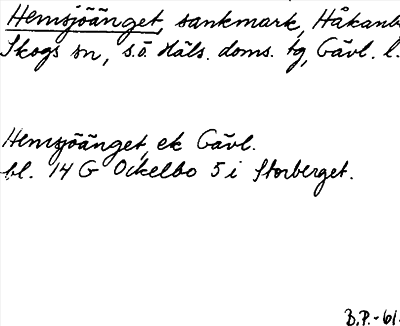 Hemsjöänget, sankmark, Håkanb
Skogs sn, s.ö. Häls. doms. tg, Gävl. l.
Hemsjöänget, ek Gävl.
bl. 14 G Ockelbo 5 i Storberget.
B.P.-61.